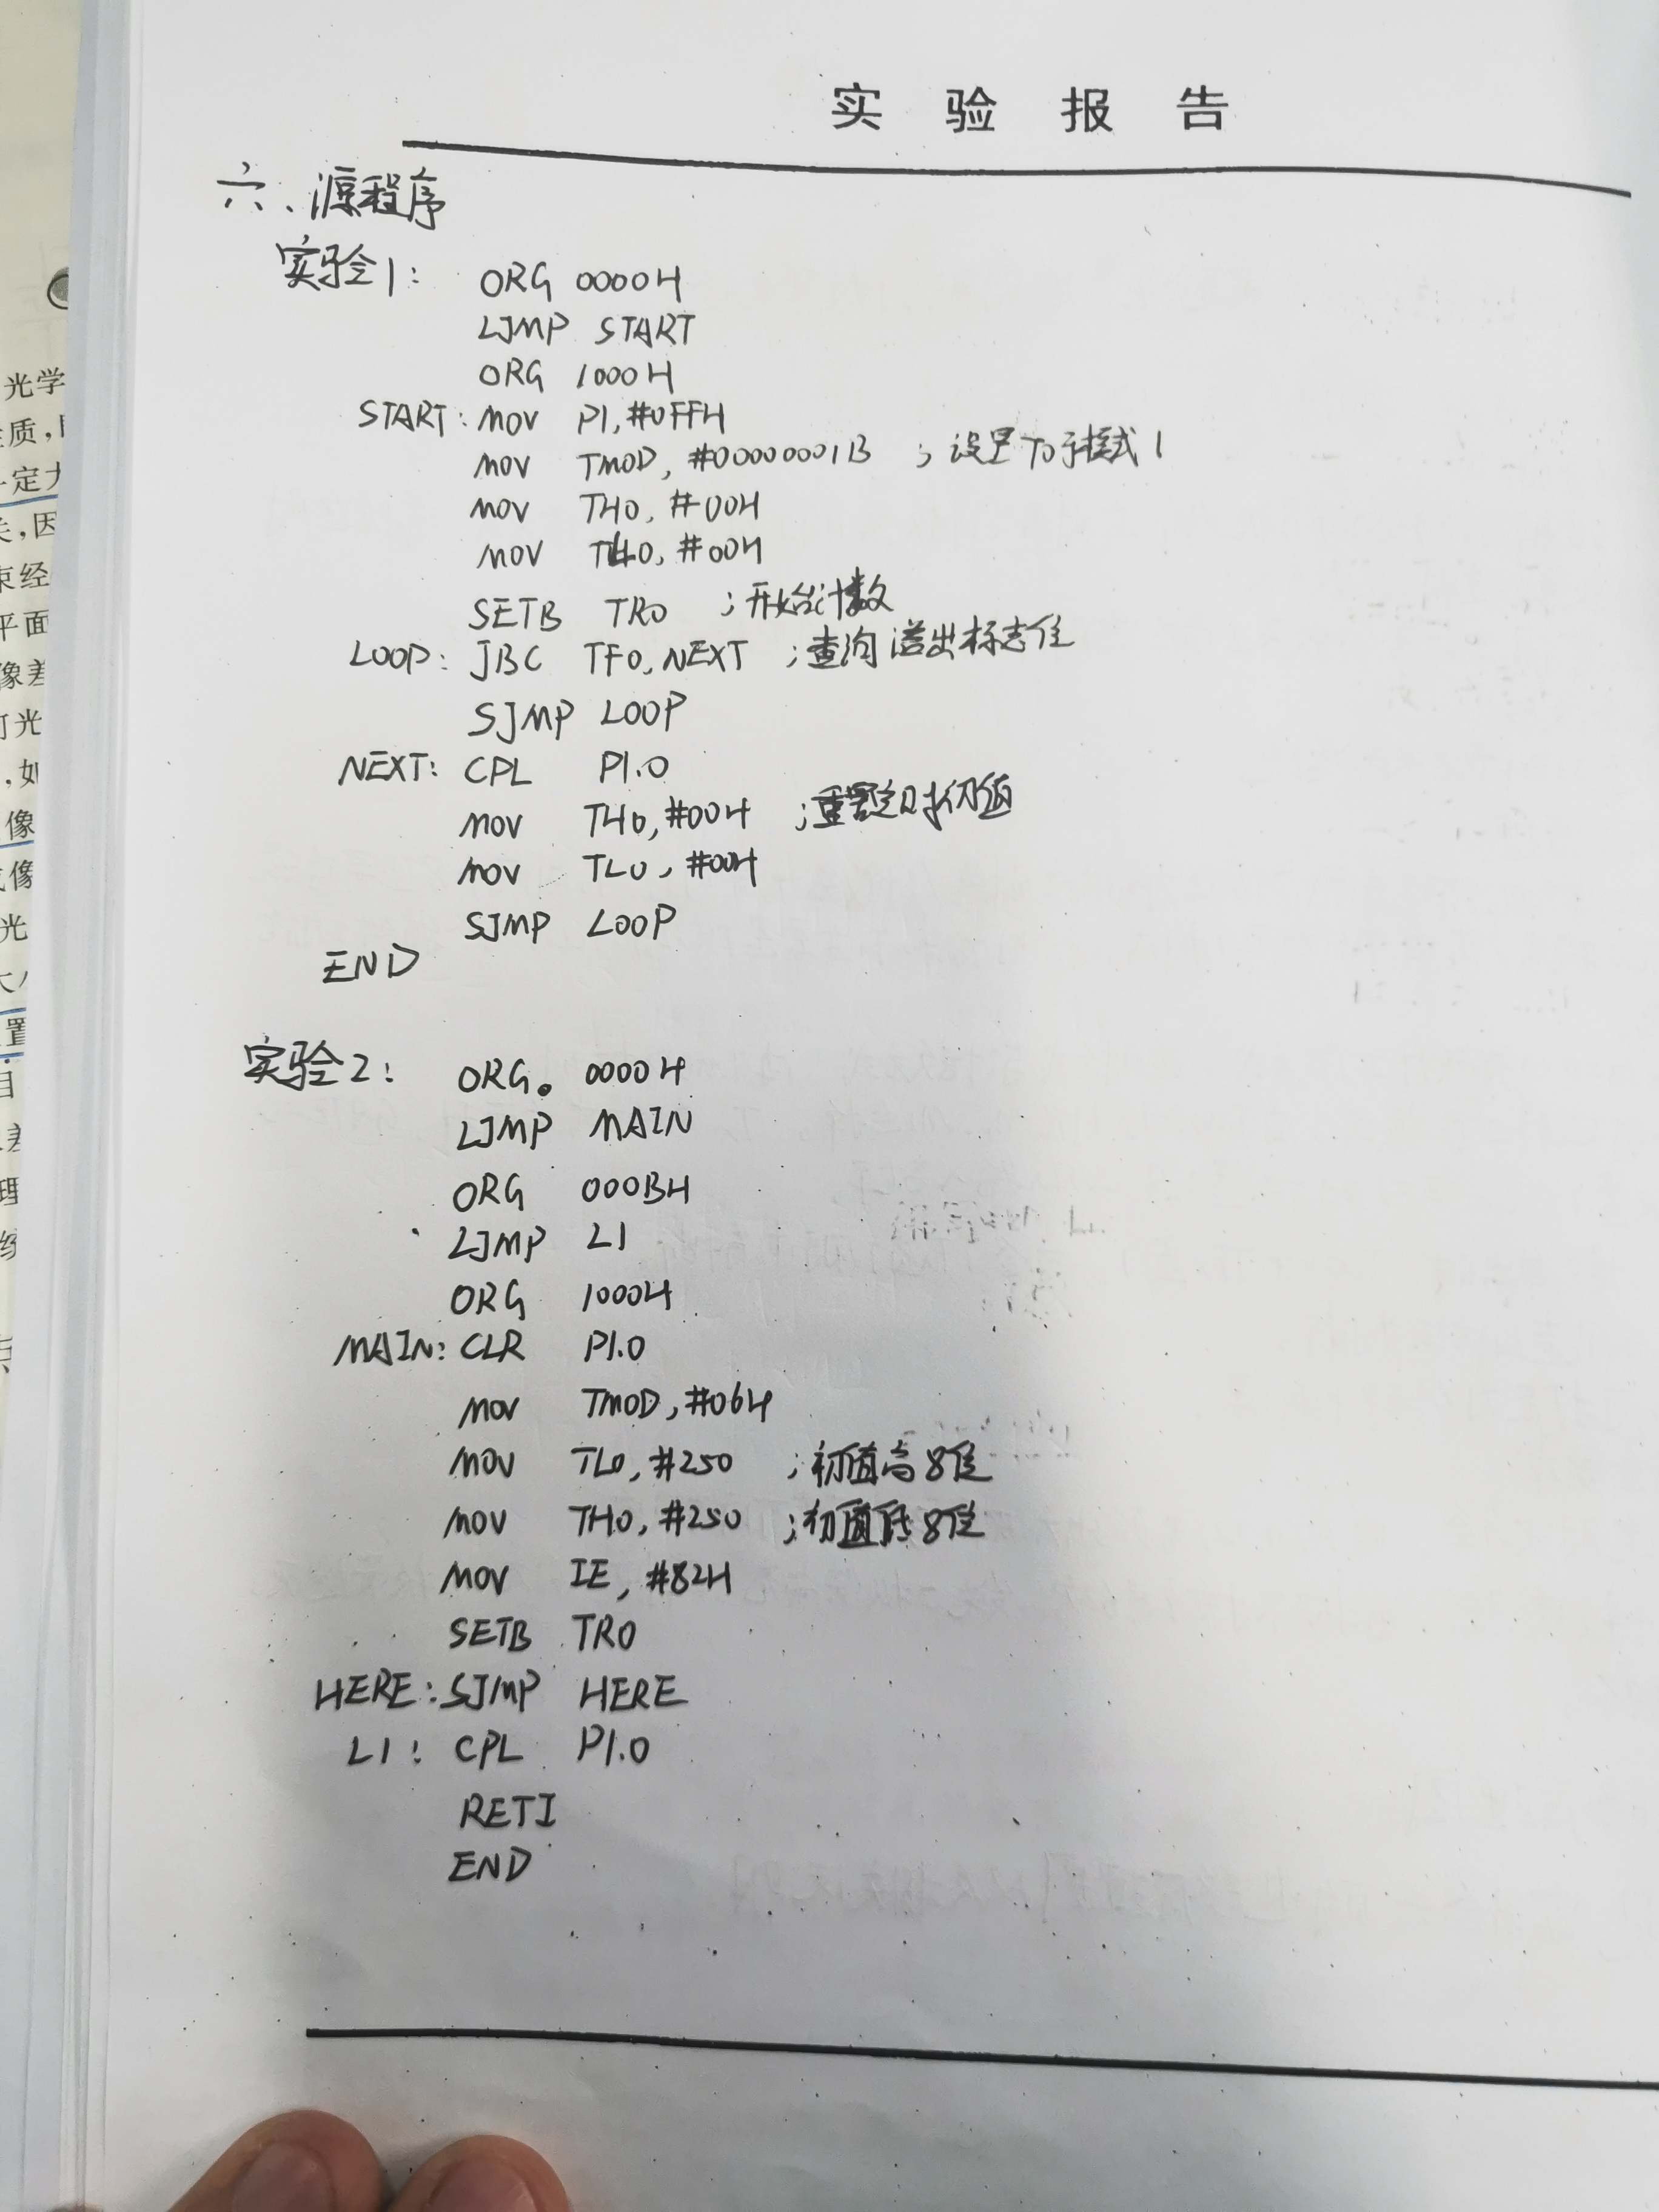 实验报告
六、源程序
实验1: ORG 0000H
LJMP START
ORG 1000H
START: MOV P1,#0FFH
MOV TMOD, #00000001B ; 设置T0于模式1
MOV TH0, #00H
MOV TL0, #00H
SETB TR0 ;开始计数
LOOP: JBC TF0,NEXT ;查询溢出标志位
SJMP LOOP
NEXT: CPL P1.0
MOV TH0,#00H ;重置定时初值
MOV TL0, #00H
SJMP LOOP
END
实验2: ORG 0000H
LJMP MAIN
ORG 000BH
LJMP L1
ORG 1000H
MAIN: CLR P1.0
MOV TMOD,#06H
MOV TL0,#250 ;初值高8位
MOV TH0,#250 ;初值低8位
MOV IE, #82H
SETB TR0
HERE: SJMP HERE
L1: CPL P1.0
RETI
END
光学
质,
一定
,因
束经
平面
像差
光
,如
像
像
光
置
目
理